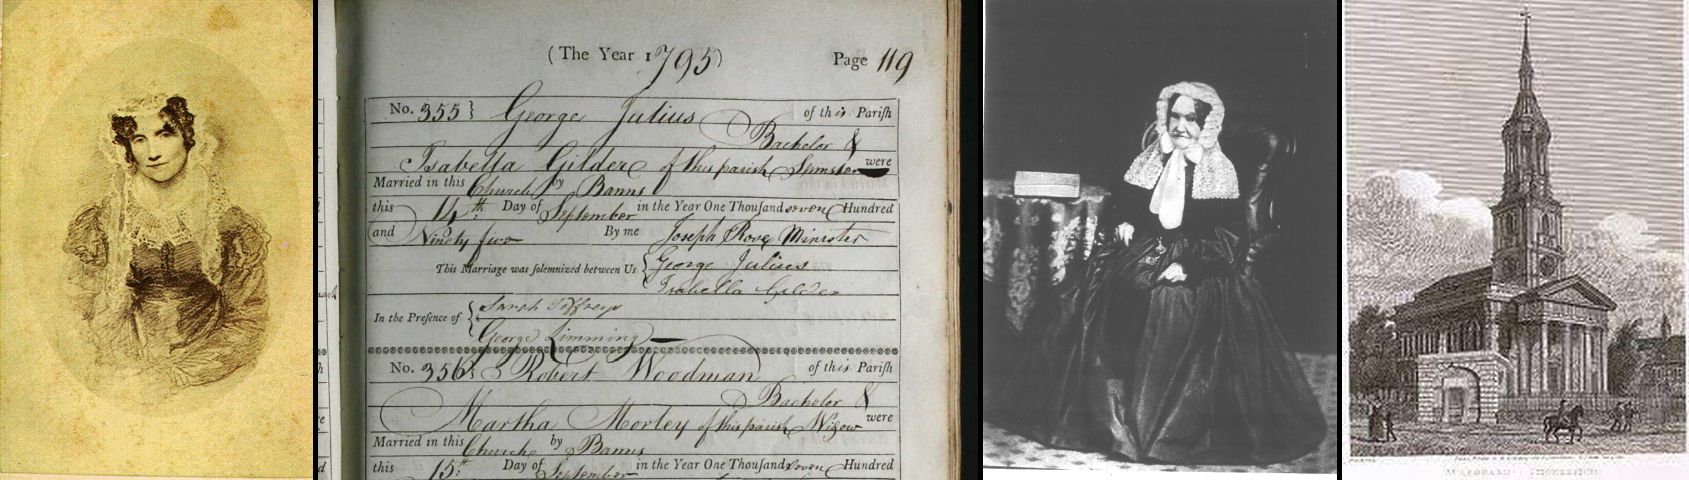 (The Year 1795)
Page 119
No. 355} George Julius of this Parish
Bachelor &
Isabella Gilder of this parish Spinster were
Married in this Church by Banns
this 14th. Day of September in the Year One Thousand seven Hundred
and Ninety five By me Joseph Rose Minister
This Marriage was solemnized between Us { George Julius
Isabella Gilder
In the Presence of { Sarah Jeffreys
George Limming
No. 356} Robert Woodman of this Parish
Bachelor &
Martha Morley of this parish Widow were
Married in this Church by Banns
this 15th: Day of September in the Year One Thousand seven Hundred